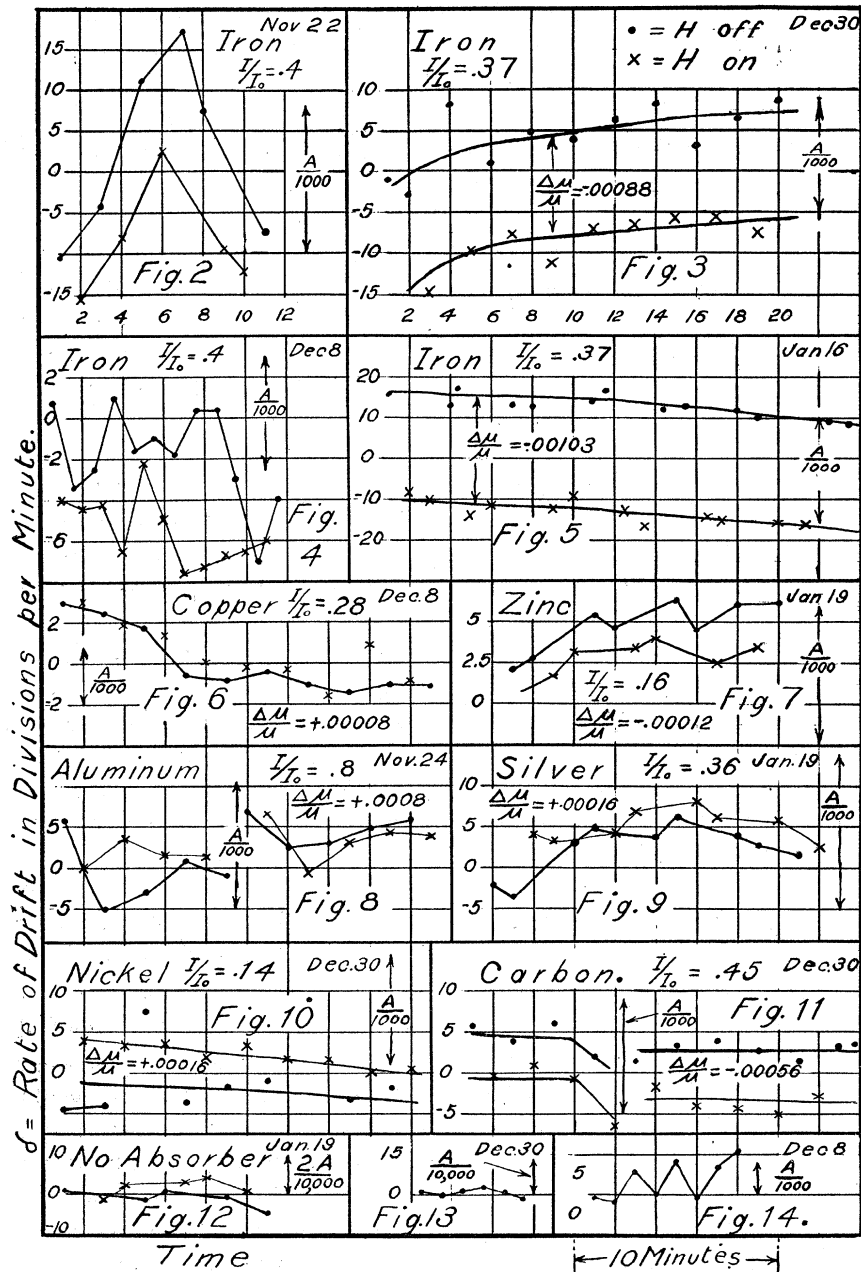 δ = Rate of Drift in Divisions per Minute.
Nov 22
Iron
I/I₀ = .4
15
10
5
0
-5
-10
-15
A/1000
Fig. 2
2 4 6 8 10 12
Iron
I/I₀ = .37
• = H off Dec 30
x = H on
10
5
0
-5
-10
-15
Δμ/μ = -.00088
A/1000
Fig. 3
2 4 6 8 10 12 14 16 18 20
Iron I/I₀ = .4 Dec 8
2
0
-2
-6
A/1000
Fig. 4
Iron I/I₀ = .37 Jan 16
20
10
0
-10
-20
Δμ/μ = -.00103
A/1000
Fig. 5
Copper I/I₀ = .28 Dec. 8
2
0
-2
A/1000
Fig. 6
Δμ/μ = +.00008
Zinc Jan 19
5
2.5
0
I/I₀ = .16
Δμ/μ = -.00012
A/1000
Fig. 7
Aluminum I/I₀ = .8 Nov. 24
10
5
0
-5
Δμ/μ = +.0008
A/1000
Fig. 8
Silver I/I₀ = .36 Jan. 19
10
5
0
-5
Δμ/μ = +.00016
A/1000
Fig. 9
Nickel I/I₀ = .14 Dec. 30
10
5
0
-5
Fig. 10
A/1000
Δμ/μ = +.00016
Carbon. I/I₀ = .45 Dec 30
10
5
0
-5
A/1000
Fig. 11
Δμ/μ = -.00056
Jan. 19
10
0
-10
No Absorber
2A/10,000
Fig. 12
15
0
Dec 30
A/10,000
Fig. 13
Dec 8
5
0
A/1000
Fig. 14.
Time
10 Minutes